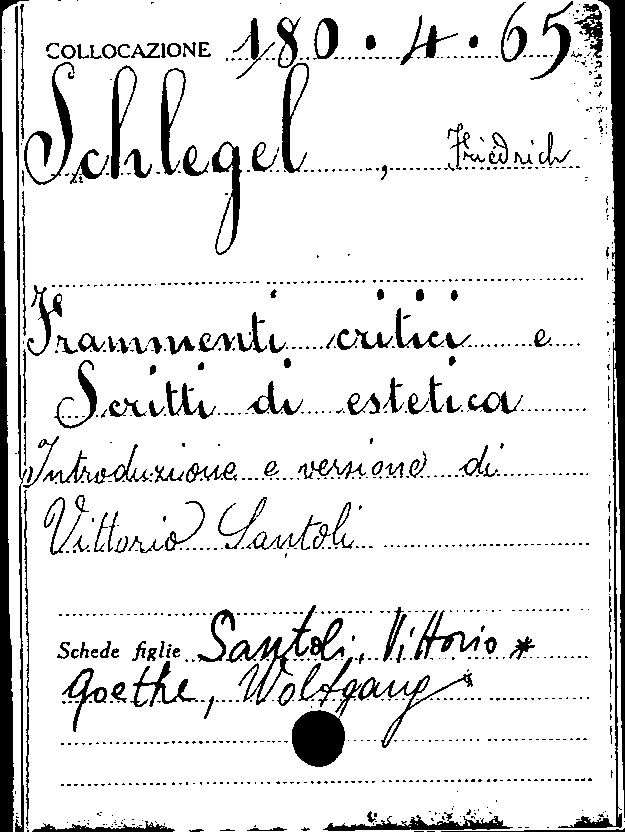 COLLOCAZIONE 180.4.65
Schlegel, Friedrich
Frammenti critici e
Scritti di estetica
Introduzione e versione di
Vittorio Santoli
Schede figlie Santoli, Vittorio *
Goethe, Wolfgang *